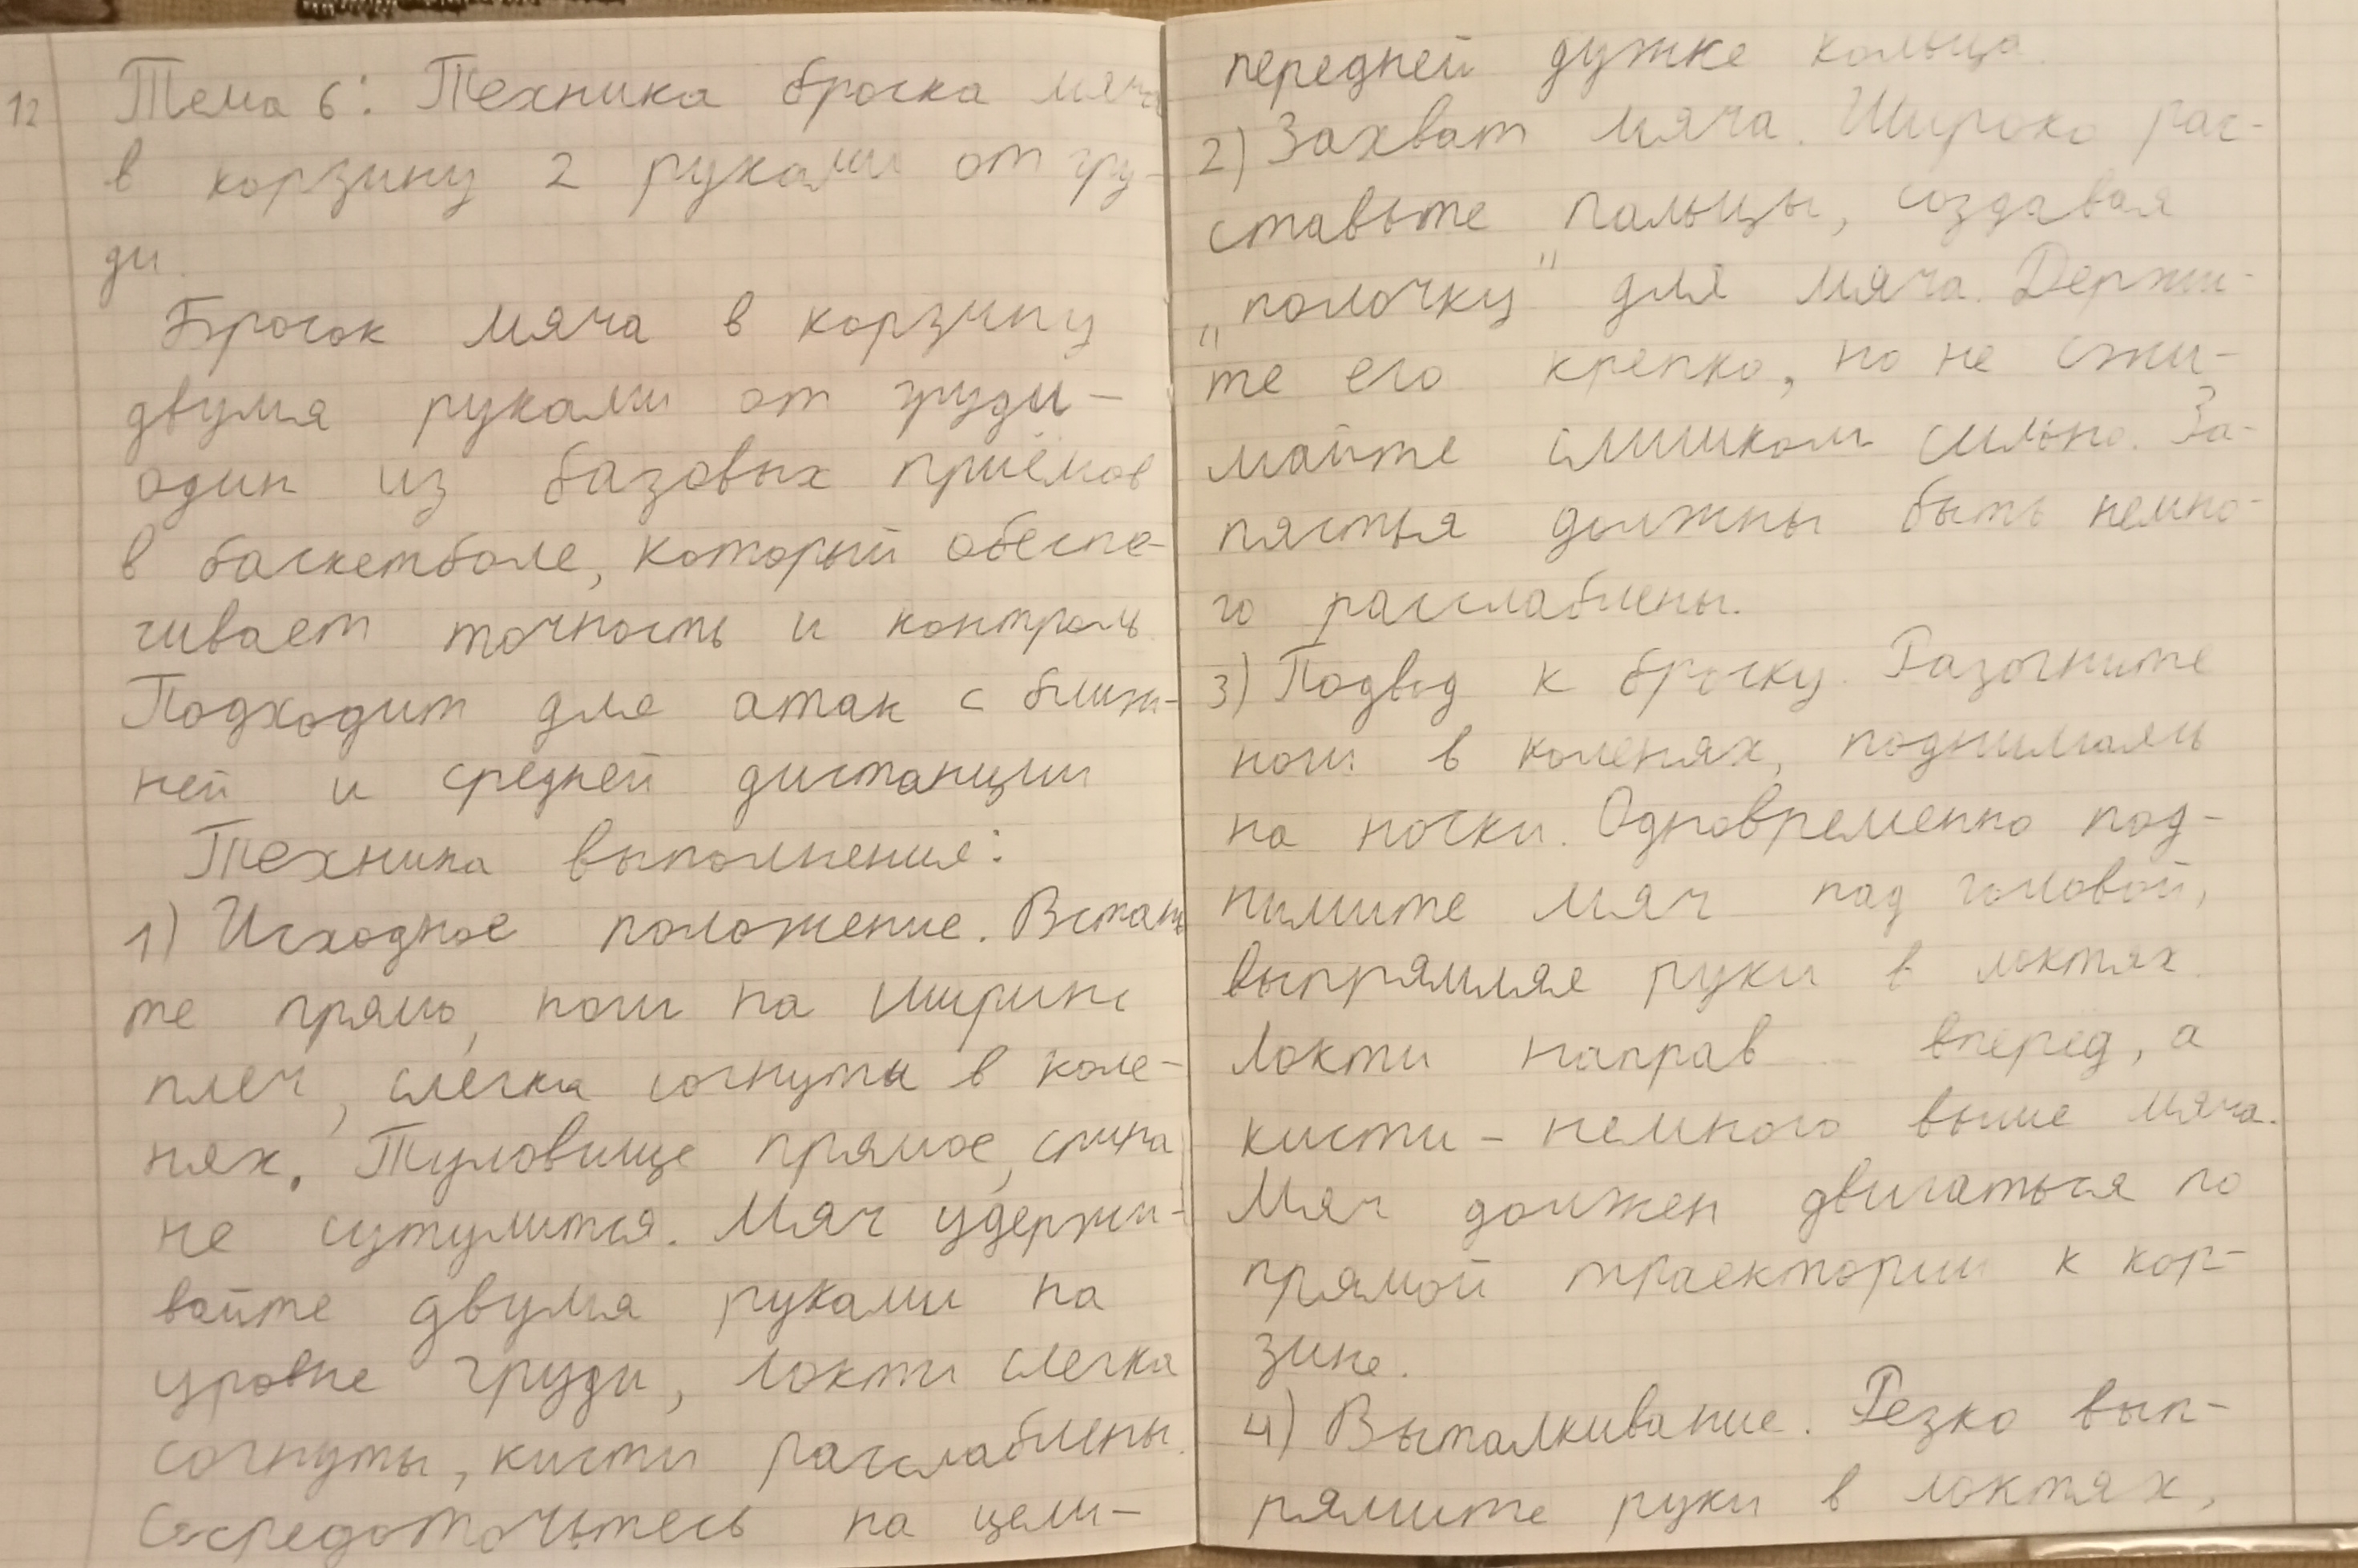 12
Тема 6: Техника броска мяча
в корзину 2 руками от гру-
ди.
Бросок мяча в корзину
двумя руками от груди -
один из базовых приёмов
в баскетболе, который обеспе-
чивает точность и контроль
Подходит для атак с ближ-
ней и средней дистанции
Техника выполнения:
1) Исходное положение. Встань
те прямо, ноги на ширине
плеч, слегка согнуты в коле-
нях. Туловище прямое, спина
не сутулится. Мяч удержи-
вайте двумя руками на
уровне груди, локти слегка
согнуты, кисти расслаблены.
Сосредоточьтесь на цели-
передней дужке кольца
2) Захват мяча. Широко рас-
ставьте пальцы, создавая
"полочку" для мяча. Держи-
те его крепко, но не сжи-
майте слишком сильно. За-
пястья должны быть немно-
го расслаблены.
3) Подвод к броску. Разогните
ноги в коленях, поднимаясь
на носки. Одновременно под-
нимите мяч над головой,
выпрямляя руки в локтях.
Локти направ вперёд, а
кисти - немного выше мяча.
Мяч должен двигаться по
прямой траектории к кор-
зине.
4) Выталкивание. Резко вып-
рямите руки в локтях,